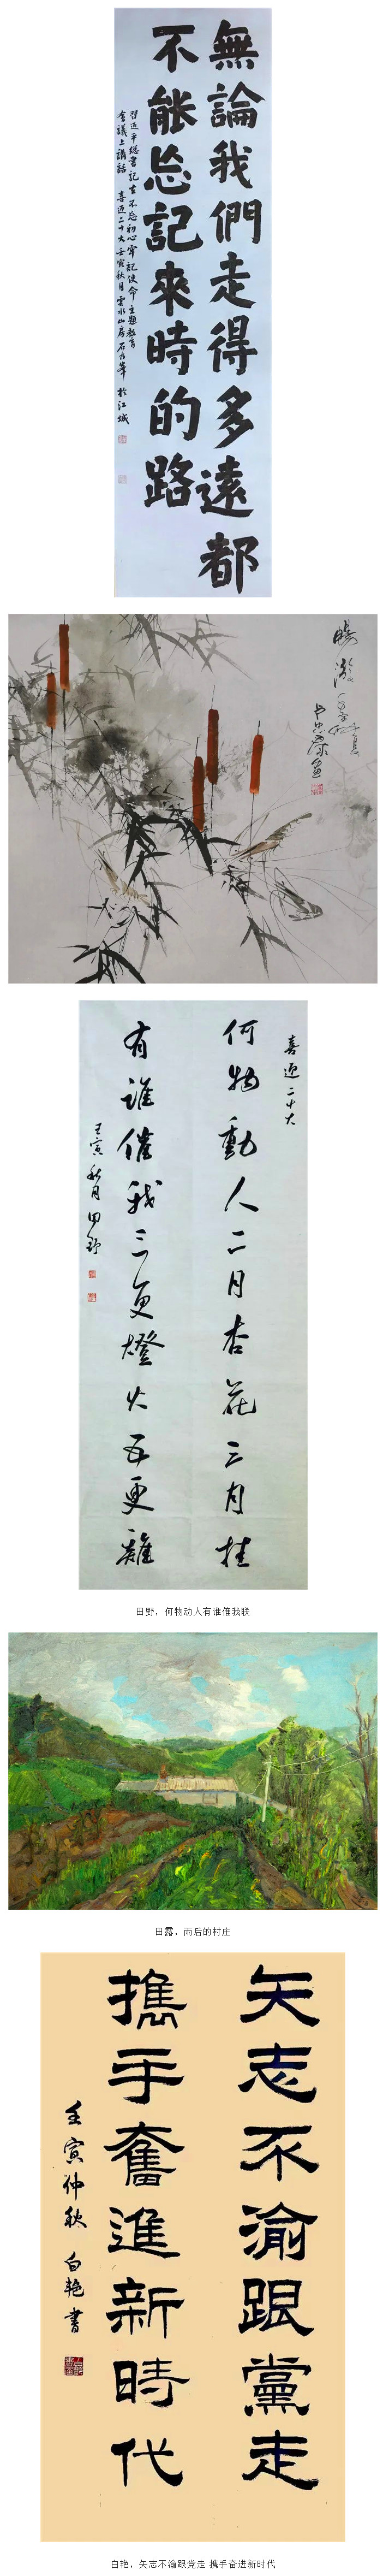 無論我們走得多遠都
不能忘記來時的路
習近平總書記在不忘初心牢記使命主題教育
會議上講話 喜迎二十大壬寅秋月雲水山房石
於江城
喜迎二十大
何物動人二月杏花三月桂
有誰催我三更燈火五更雞
壬寅秋月田野
田野，何物动人有谁催我联
田露，雨后的村庄
矢志不渝跟黨走
攜手奮進新時代
壬寅仲秋 白艷書
白艳，矢志不渝跟党走 携手奋进新时代